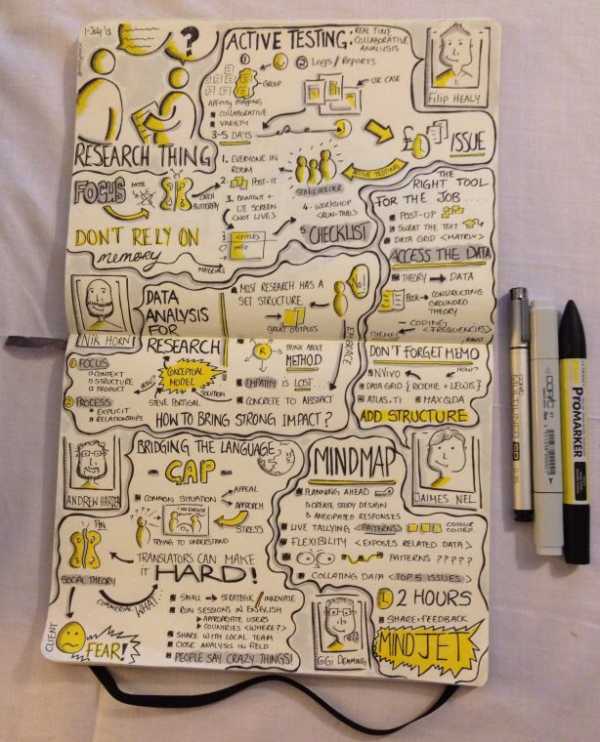 1-July '15
?
RESEARCH THING
ACTIVE TESTING:
REAL TIME
COLLABORATIVE
ANALYSIS
FILIP HEALY
Logs / Reports
GROUP
USE CASE
AFFINITY MAPPING
COLLABORATIVE
VARIETY
3-5 DAYS
£
ISSUE
FOCUS
DON'T RELY ON
memory
1. EVERYONE IN
ROOM
2. POST-IT
STAKEHOLDER
4. WORKSHOP
5 CHECKLIST
THE
RIGHT TOOL
FOR THE JOB...
POST-UP
SWEAT THE TEXT
DATA GRID <MATRIX>
ACCESS THE DATA
THEORY → DATA
CONSTRUCTING
GROUNDED
THEORY
CODING
<FREQUENCIES>
NIK HORN
DATA
ANALYSIS
FOR
RESEARCH
MOST RESEARCH HAS A
SET STRUCTURE
GREAT OUTPUTS
EMBRACE
THINK ABOUT
METHOD
EMPATHY IS LOST
CONCRETE TO ABSTRACT
1 FOCUS
CONTEXT
STRUCTURE
PRODUCT
2 PROCESS
EXPLICIT
RELATIONSHIPS
CONCEPTUAL
MODEL
SOLUTION
STEVE PORTIGAL
HOW TO BRING STRONG IMPACT?
DON'T FORGET MEMO
NVIVO
DATA GRID { RITCHIE + LEWIS }
ATLAS.TI
MAXQDA
ADD STRUCTURE
ANDREW
BRIDGING THE LANGUAGE
GAP
COMMON SITUATION
APPEAL
APPROACH
STRESS
TRYING TO UNDERSTAND
TRANSLATORS CAN MAKE
IT HARD!
SOCIAL THEORY
WHAT...
SMALL → STRATEGIC / INNOVATE
RUN SESSIONS IN ENGLISH
APPROPRIATE USERS
COUNTRIES <WHERE?>
SHARE WITH LOCAL TEAM
CLOSE ANALYSIS IN FIELD
PEOPLE SAY CRAZY THINGS!
CLIENT
FEAR!
MINDMAP
JAIMES NEL
PLANNING AHEAD
CREATE STUDY DESIGN
ANTICIPATED RESPONSES
LIVE TALLYING <PATTERNS>
COLOUR
CODED
FLEXIBILITY <EXPOSES RELATED DATA>
PATTERNS ?????
COLLATING DATA <TOP 5 ISSUES>
2 HOURS
SHARE + FEEDBACK
MINDJET
copic
PROMARKER